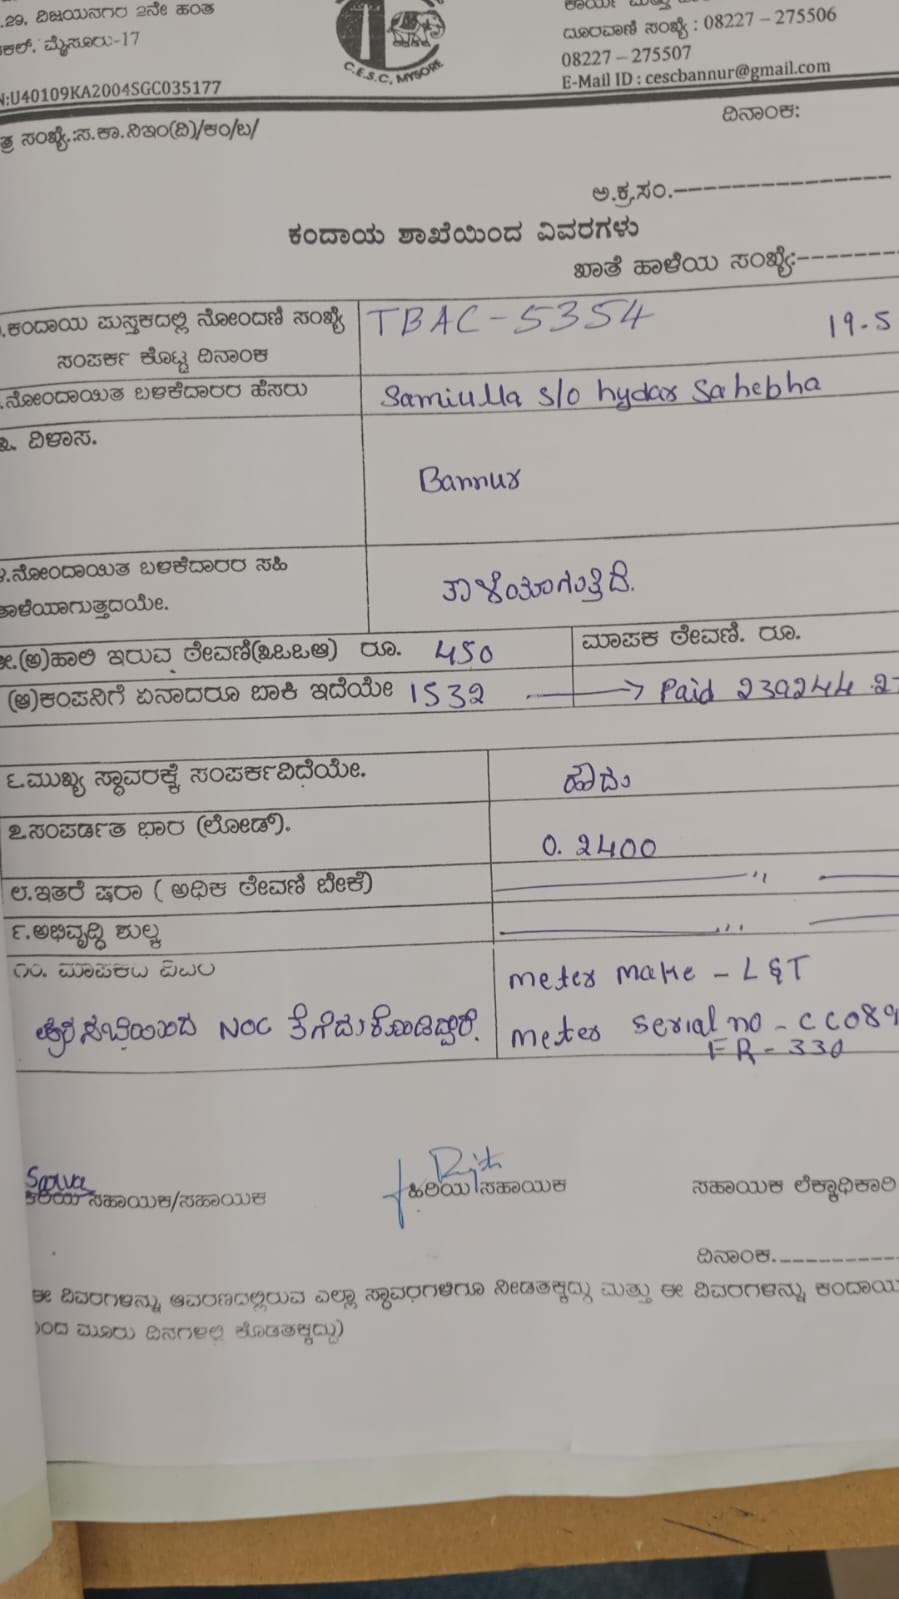 .29, ವಿಜಯನಗರ 2ನೇ ಹಂತ
ಮೈಸೂರು-17
N:U40109KA2004SGC035177
C.E.S.C, MYSORE
ದೂರವಾಣಿ ಸಂಖ್ಯೆ : 08227 – 275506
08227 – 275507
E-Mail ID : cescbannur@gmail.com
ತ್ರ ಸಂಖ್ಯೆ.:ಸ.ಕಾ.ನಿಇಂ(ವಿ)/ಕಂ/ಬ/
ದಿನಾಂಕ:
ಅ.ಕ್ರ.ಸಂ.----------------
ಕಂದಾಯ ಶಾಖೆಯಿಂದ ವಿವರಗಳು
ಖಾತೆ ಹಾಳೆಯ ಸಂಖ್ಯೆ:--------
.ಕಂದಾಯ ಪುಸ್ತಕದಲ್ಲಿ ನೋಂದಣಿ ಸಂಖ್ಯೆ TBAC-5354 19.5
ಸಂಪರ್ಕ ಕೊಟ್ಟ ದಿನಾಂಕ
.ನೋಂದಾಯಿತ ಬಳಕೆದಾರರ ಹೆಸರು Samiulla s/o hydar Sahebha
೩. ವಿಳಾಸ.
Bannur
೪.ನೋಂದಾಯಿತ ಬಳಕೆದಾರರ ಸಹಿ
ತಾಳೆಯಾಗುತ್ತದಯೇ. ತಾಳೆಯಾಗುತ್ತಿದೆ.
೫.(ಅ)ಹಾಲಿ ಇರುವ ಠೇವಣಿ(೩ಎಂಎಂಡಿ) ರೂ. 450 ಮಾಪಕ ಠೇವಣಿ. ರೂ.
(ಆ)ಕಂಪನಿಗೆ ಏನಾದರೂ ಬಾಕಿ ಇದೆಯೇ 1532 → Paid 239244.2
೬.ಮುಖ್ಯ ಸ್ಥಾವರಕ್ಕೆ ಸಂಪರ್ಕವಿದೆಯೇ. ಹೌದು
೭.ಸಂಪರ್ಡಿತ ಭಾರ (ಲೋಡ್). 0.2400
೮.ಇತರೆ ಷರಾ ( ಅಧಿಕ ಠೇವಣಿ ಬೇಕೆ) "
೯.ಅಭಿವೃದ್ಧಿ ಶುಲ್ಕ
೧೦. ಮಾಪಕದ ವಿವರ meter make - L&T
ಪುರಸಭೆಯಿಂದ NOC ತೆಗೆದುಕೊಂಡಿದ್ದಾರೆ. meter serial no - CC089
FR - 330
ಕಿರಿಯ ಸಹಾಯಕ/ಸಹಾಯಕ ಹಿರಿಯ ಸಹಾಯಕ ಸಹಾಯಕ ಲೆಕ್ಕಾಧಿಕಾರಿ
ದಿನಾಂಕ.------------
ಈ ವಿವರಗಳನ್ನು ಆವರಣದಲ್ಲಿರುವ ಎಲ್ಲಾ ಸ್ಥಾವರಗಳಿಗೂ ನೀಡತಕ್ಕದ್ದು ಮತ್ತು ಈ ವಿವರಗಳನ್ನು ಕಂದಾಯ
ಂದ ಮೂರು ದಿನಗಳಲ್ಲಿ ಕೊಡತಕ್ಕದ್ದು)